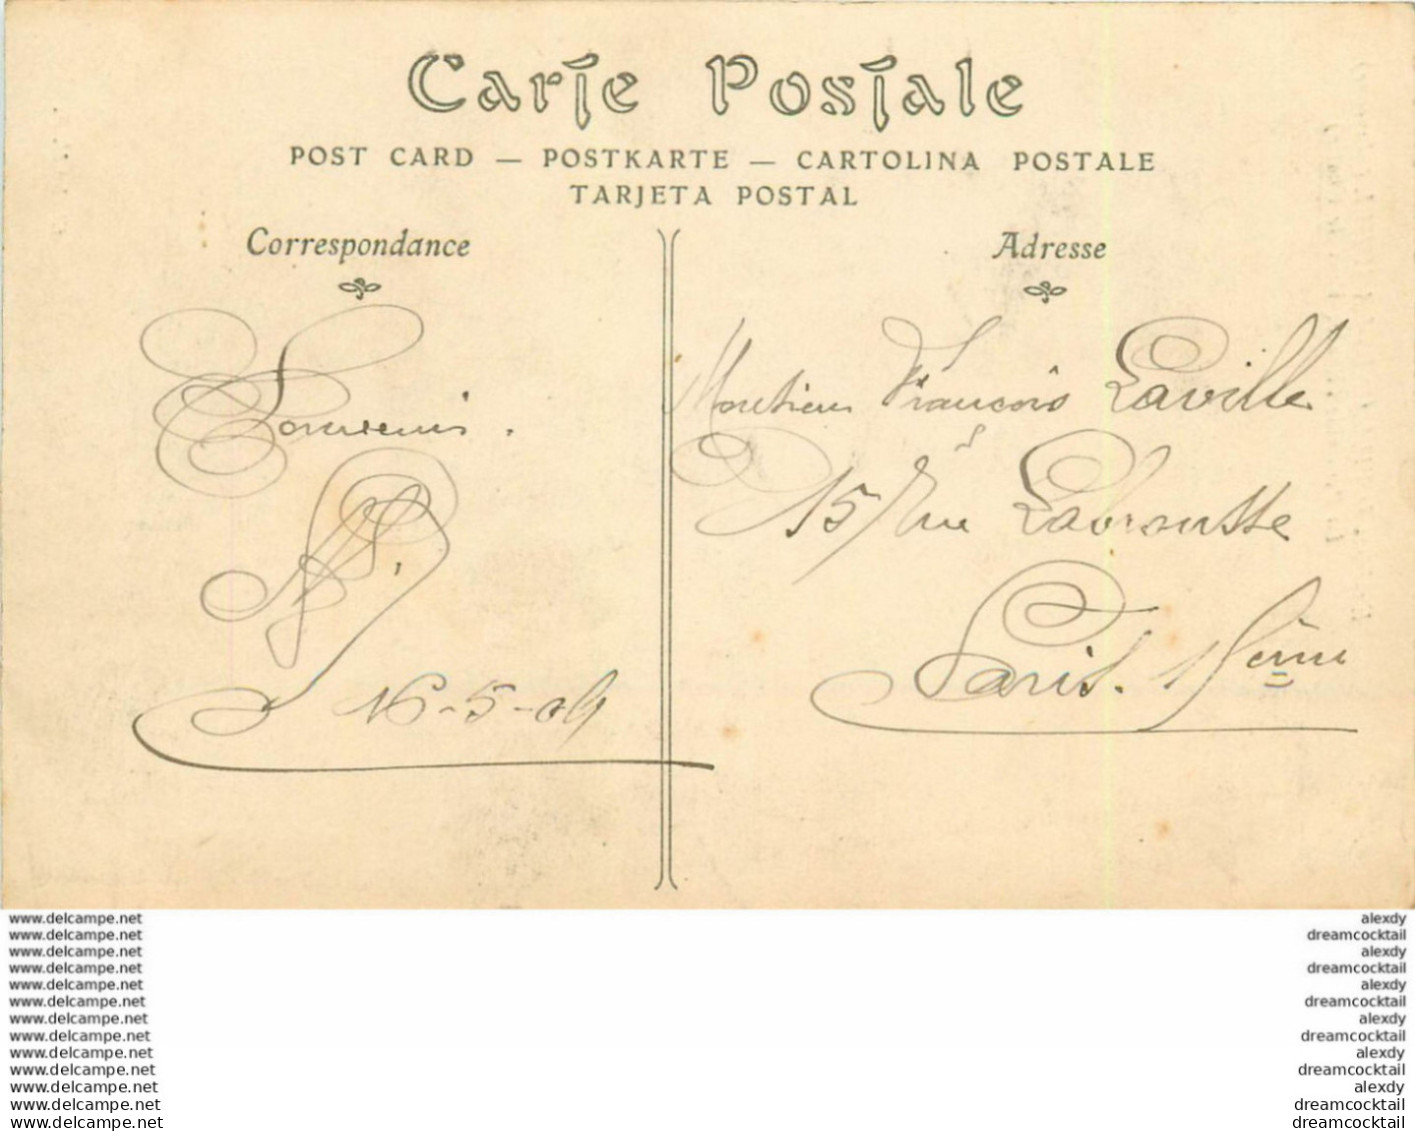 Carte Postale
POST CARD — POSTKARTE — CARTOLINA POSTALE
TARJETA POSTAL
Correspondance
Souvenir.
16-5-09
Adresse
Monsieur François Laville
15 / Rue Labrousse
Paris. 15ème
www.delcampe.net
www.delcampe.net
www.delcampe.net
www.delcampe.net
www.delcampe.net
www.delcampe.net
www.delcampe.net
www.delcampe.net
www.delcampe.net
www.delcampe.net
www.delcampe.net
www.delcampe.net
www.delcampe.net
alexdy
dreamcocktail
alexdy
dreamcocktail
alexdy
dreamcocktail
alexdy
dreamcocktail
alexdy
dreamcocktail
alexdy
dreamcocktail
dreamcocktail